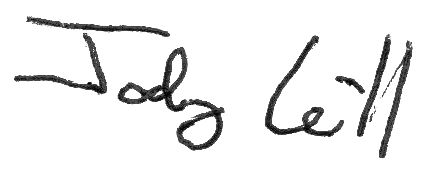 Jody Leill